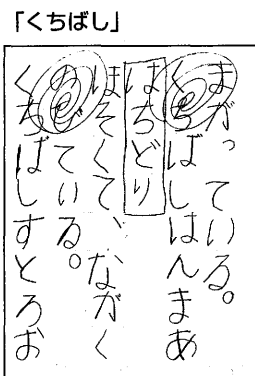 「くちばし」
まがっている。
くちばしはんまあ
はちどり
ほそくて、ながく
ている。
くちばしすとろお